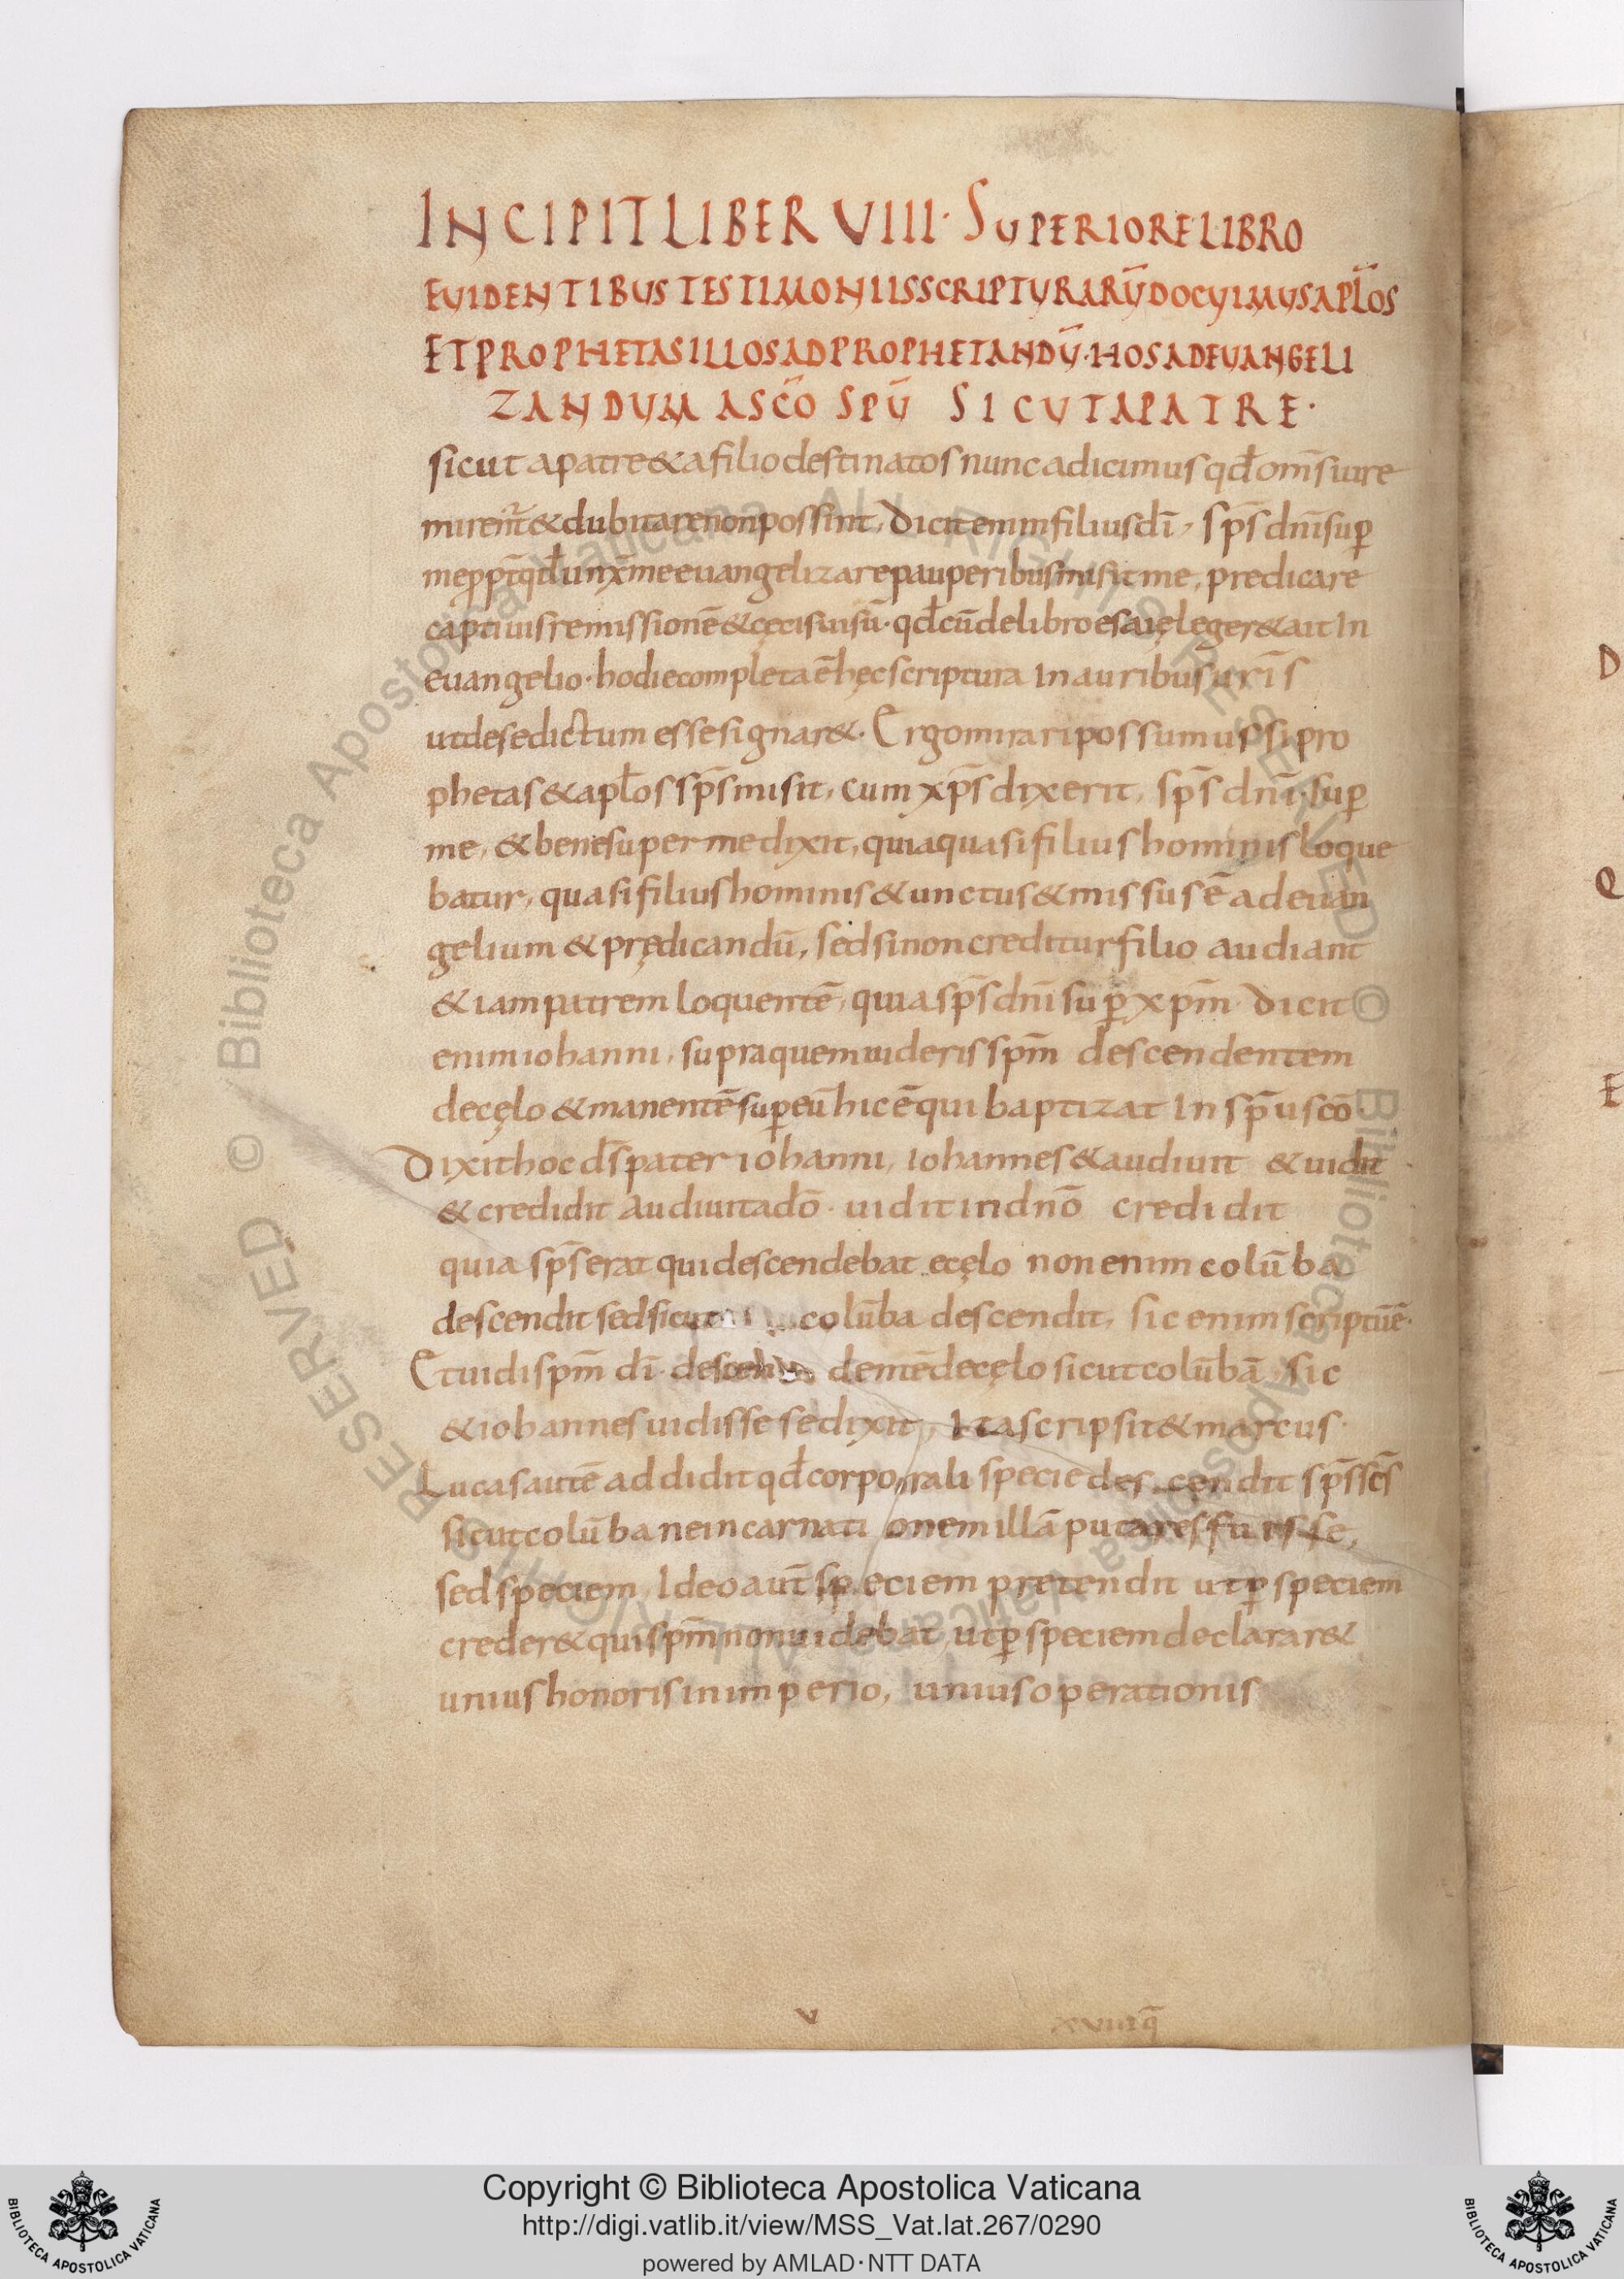 INCIPIT LIBER VIII · SUPERIORE LIBRO
EVIDENTIBUS TESTIMONIIS SCRIPTURARŪ DOCUIMUS APL̄OS
ET PROPHETAS ILLOS AD PROPHETANDŪ · HOS AD EVANGELI
ZANDUM A SC̄O SPŪ SICUT A PATRE ·
sicut a patre & a filio destinatos nunc adicimus qđ om̄s iure
mirent̄ & dubitare non possint, Dicit enim filius dī, sp̄s dn̄i suꝑ
me ꝓpt̄ qđ unx̄ me euangelizare pauperibus misit me, predicare
captiuis remissionē & cęcis uisū · qđ cū de libro esaię leger& ait In
euangelio · hodie completa ē hęc scriptura In auribus ur̄is
ut de se dictum esse signar& · Ergo mirari possumus si pro
phetas & apl̄os sp̄s misit, cum xp̄s dixerit, sp̄s dn̄i · suꝑ
me, & bene super me dixit, quia quasi filius hominis loque
batur, quasi filius hominis & unctus & missus ē ad euan
gelium & prędicandū, sed si non creditur filio audiant
& iam patrem loquentē, quia sp̄s dn̄i suꝑ xpm̄ · Dicit
enim iohanni, supra quem uideris spm̄ descendentem
de cęlo & manentē suꝑ eū hic ē qui baptizat In sp̄u sc̄o ·
Dixit hoc ds̄ pater iohanni, iohannes & audiuit & uidit
& credidit audiuit a dō · uidit in dn̄o credidit
quia sp̄s erat qui descendebat e cęlo non enim colūba
descendit sed sicut colūba descendit, sic enim scriptū ē ·
Et uidi spm̄ dī · descen dentē de cęlo sicut colūbā, sic
& iohannes uidisse se dixit, Ita scripsit & marcus ·
Lucas autē addidit qđ corporali specie descendit sp̄s sc̄s
sicut colūba ne incarnati onem illā putares fuisse,
sed speciem, Ideo aut̄ speciem pretendit ut ꝑ speciem
creder& qui spm̄ non uidebat, ut ꝑ speciem declarar&
unius honoris in imperio, unius operationis
V
xviiii q̄
Copyright © Biblioteca Apostolica Vaticana
http://digi.vatlib.it/view/MSS_Vat.lat.267/0290
powered by AMLAD · NTT DATA
BIBLIOTECA APOSTOLICA VATICANA
BIBLIOTECA APOSTOLICA VATICANA
© Biblioteca Apostolica Vaticana ALL RIGHTS RESERVED
© Biblioteca Apostolica Vaticana ALL RIGHTS RESERVED
D
Q
E